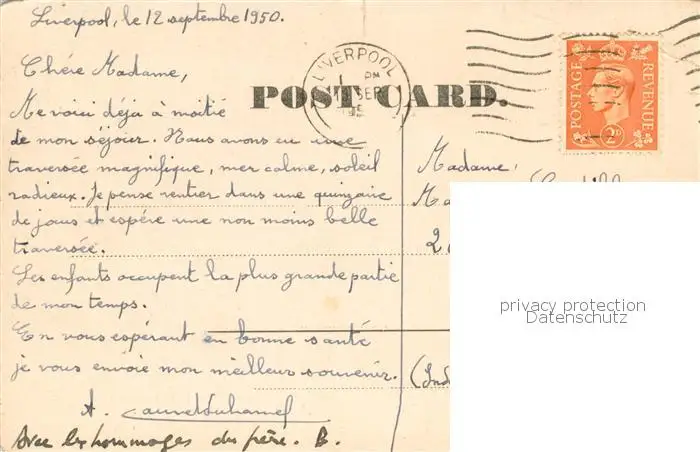 Liverpool, le 12 septembre 1950.
Chère Madame,
Me voici déjà à moitié
de mon séjour. Nous avons eu une
traversée magnifique, mer calme, soleil
radieux. Je pense rentrer dans une quinzaine
de jours et espère une non moins belle
traversée.
Les enfants occupent la plus grande partie
de mon temps.
En vous espérant en bonne santé
je vous envoie mon meilleur souvenir.
A.
Avec les hommages du frère. B.
POST CARD.
LIVERPOOL
PM
SEP
POSTAGE
REVENUE
2D
Madame,
Ma
2
(Ind
privacy protection
Datenschutz